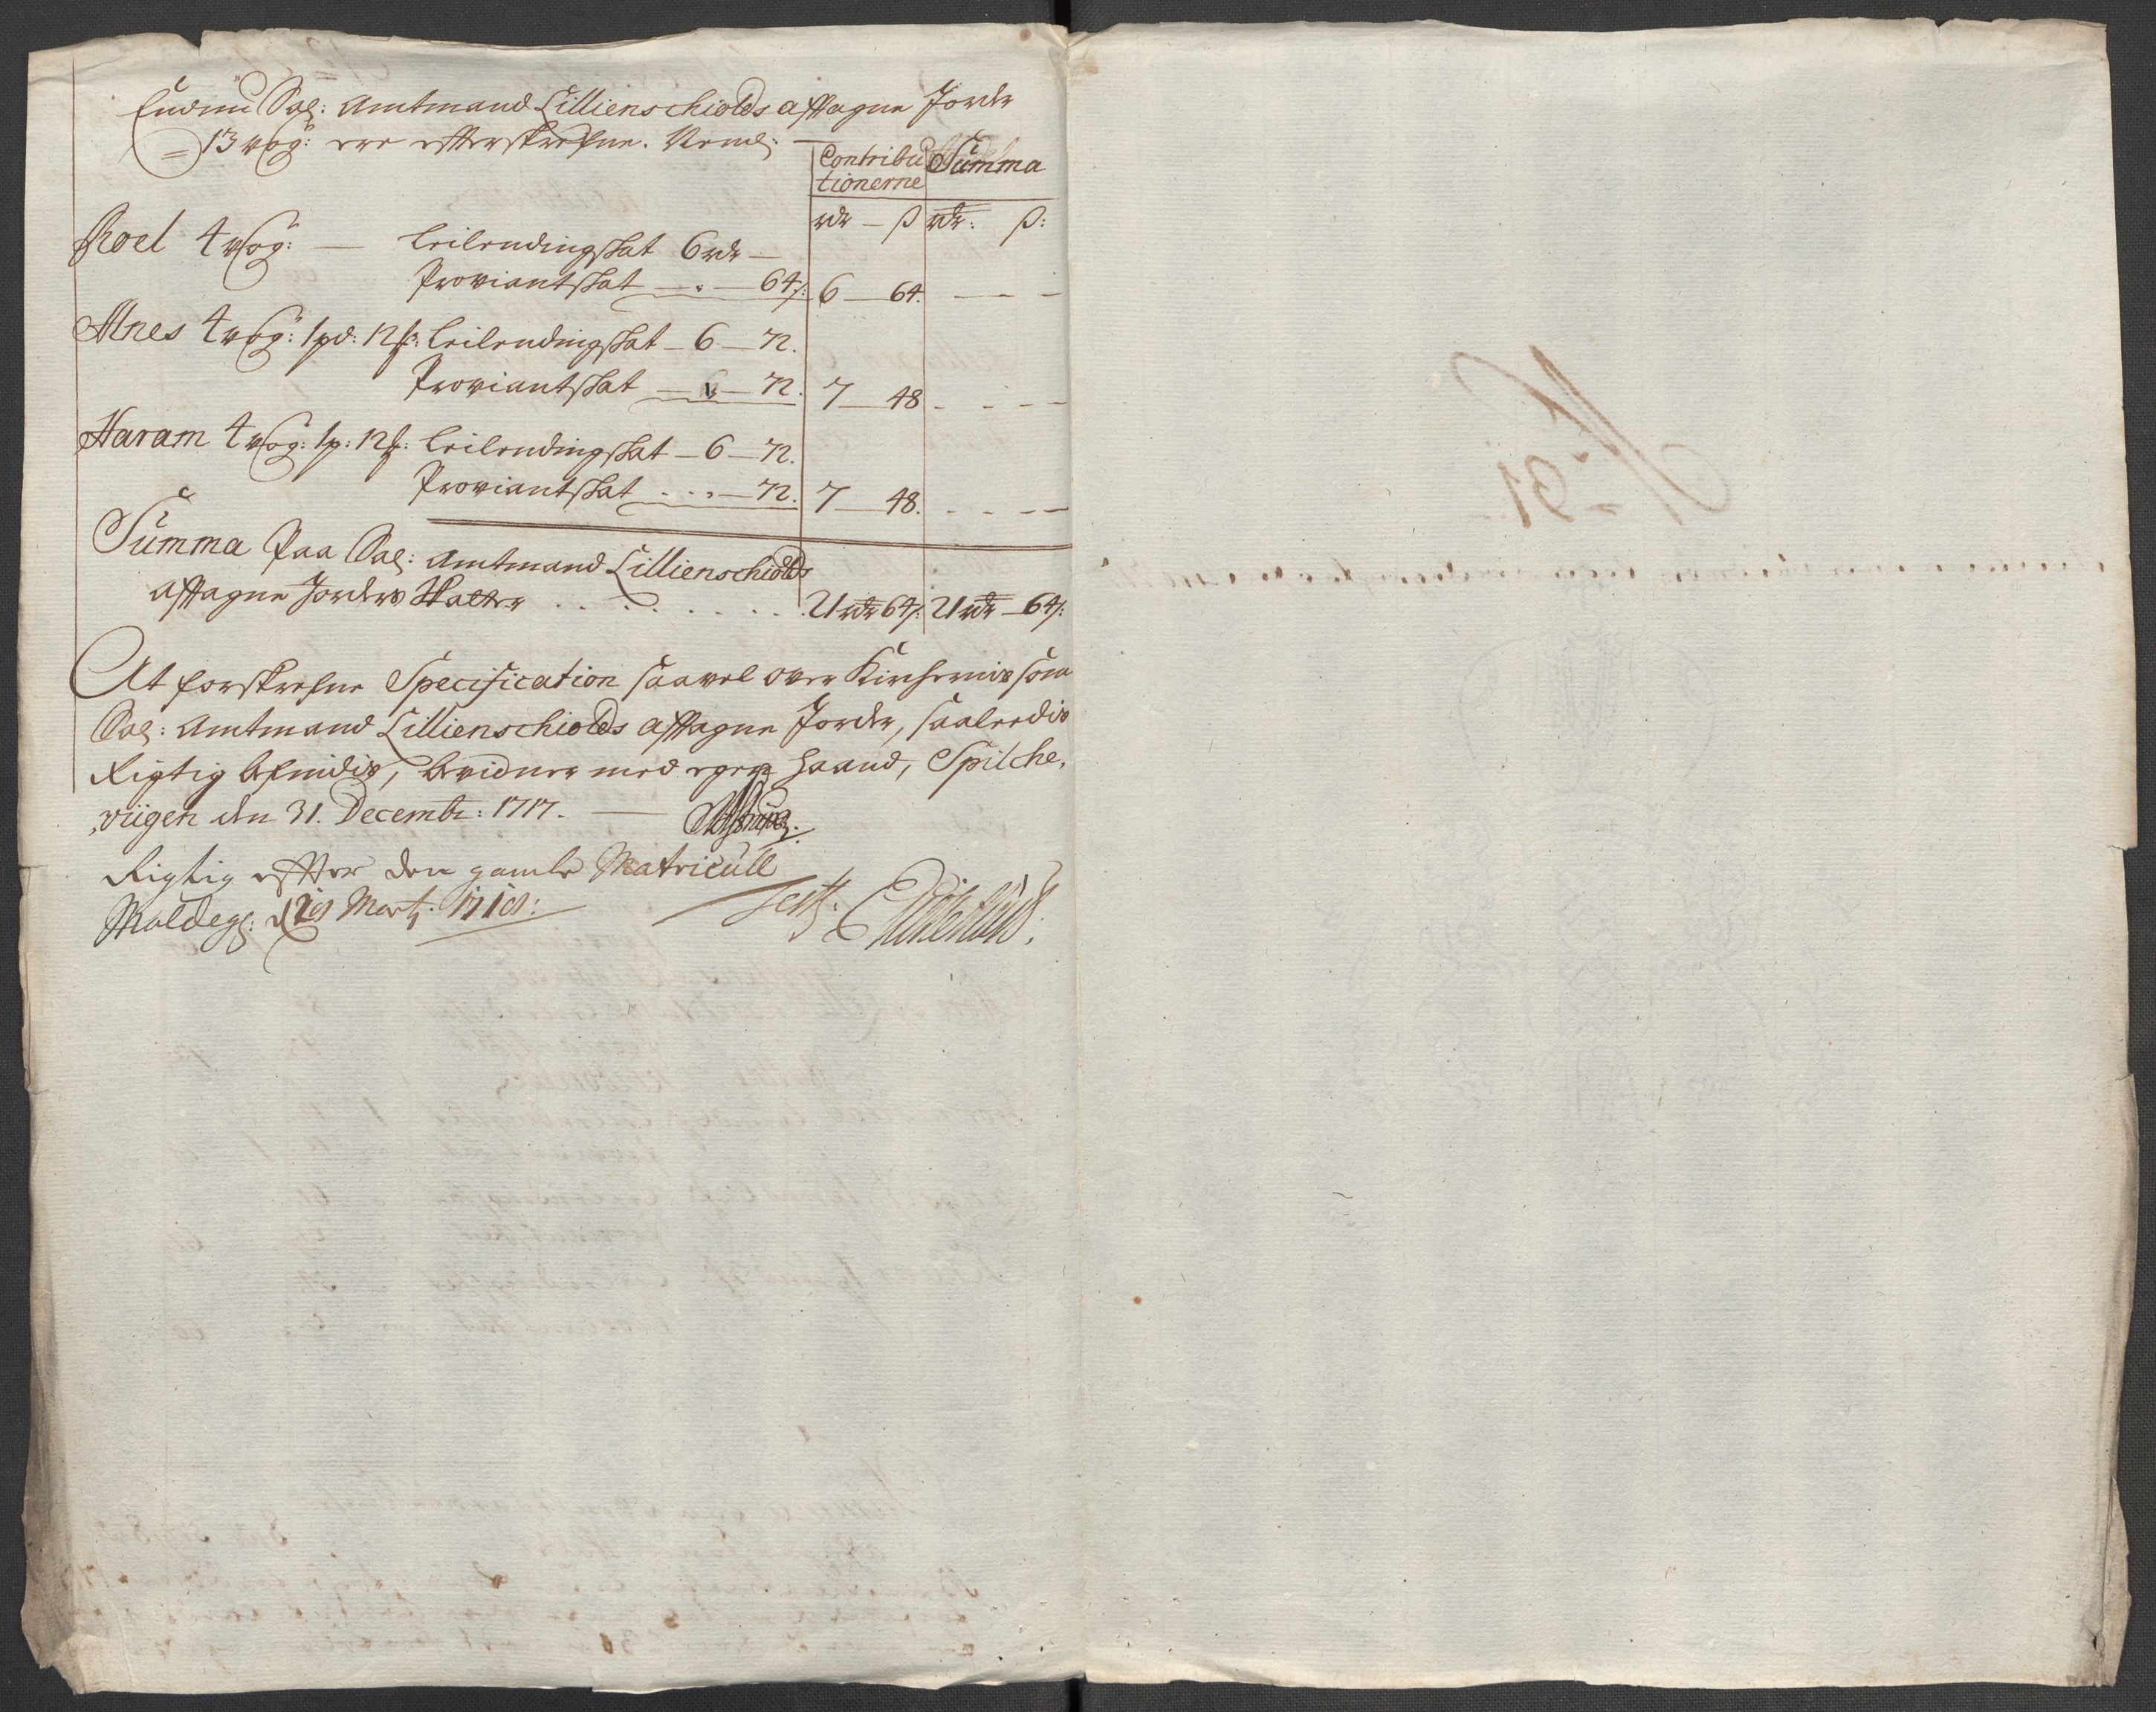 Endnu Sal: Amtmand Lillienschiolds afftagne Jorder
13 wog: ere effterskrefne. Neml:
Contribu Summa
tionerne
rdr – ß rdr: ß:
Roel 4 wog: — Leilendingskat 6 rdr —
Proviantskat — 64ß: 6 — 64. — —
Alnes 4 wog: 1 pd: 12 ȼ: Leilendingskat – 6 – 72.
Proviantskat — 72. 7 — 48 - - — —
Haram 4 wog: 1 p: 12 ȼ: Leilendingskat – 6 – 72.
Proviantskat . . . – 72. 7 — 48. - - — —
Summa Paa Sal: Amtmand Lillienschiolds
afftagne Jorders Skatter . . . . . . . . 21 rdr 64ß: 21 rdr – 64ß:
At forskrefne Specification saavel over Kirchernis som
Sal: Amtmand Lillienschiolds afftagne Jorder, saaledis
Rigtig befindis, bevidner med egen Haand, Spilche,
,viigen den 31. Decembr: 1717. —
Rigtig effter den gamle Matricull
Moldeg: d Mart: 1718:
No 31